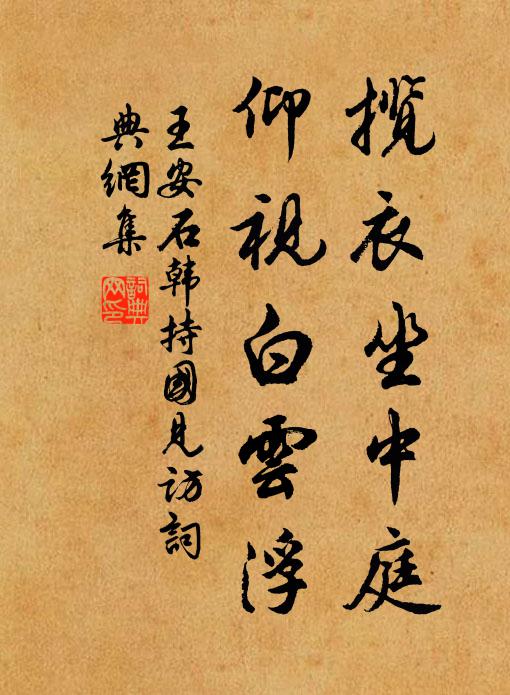 攬衣坐中庭
仰視白雲浮
王安石韩持國見访詞
典網集
詞典网印